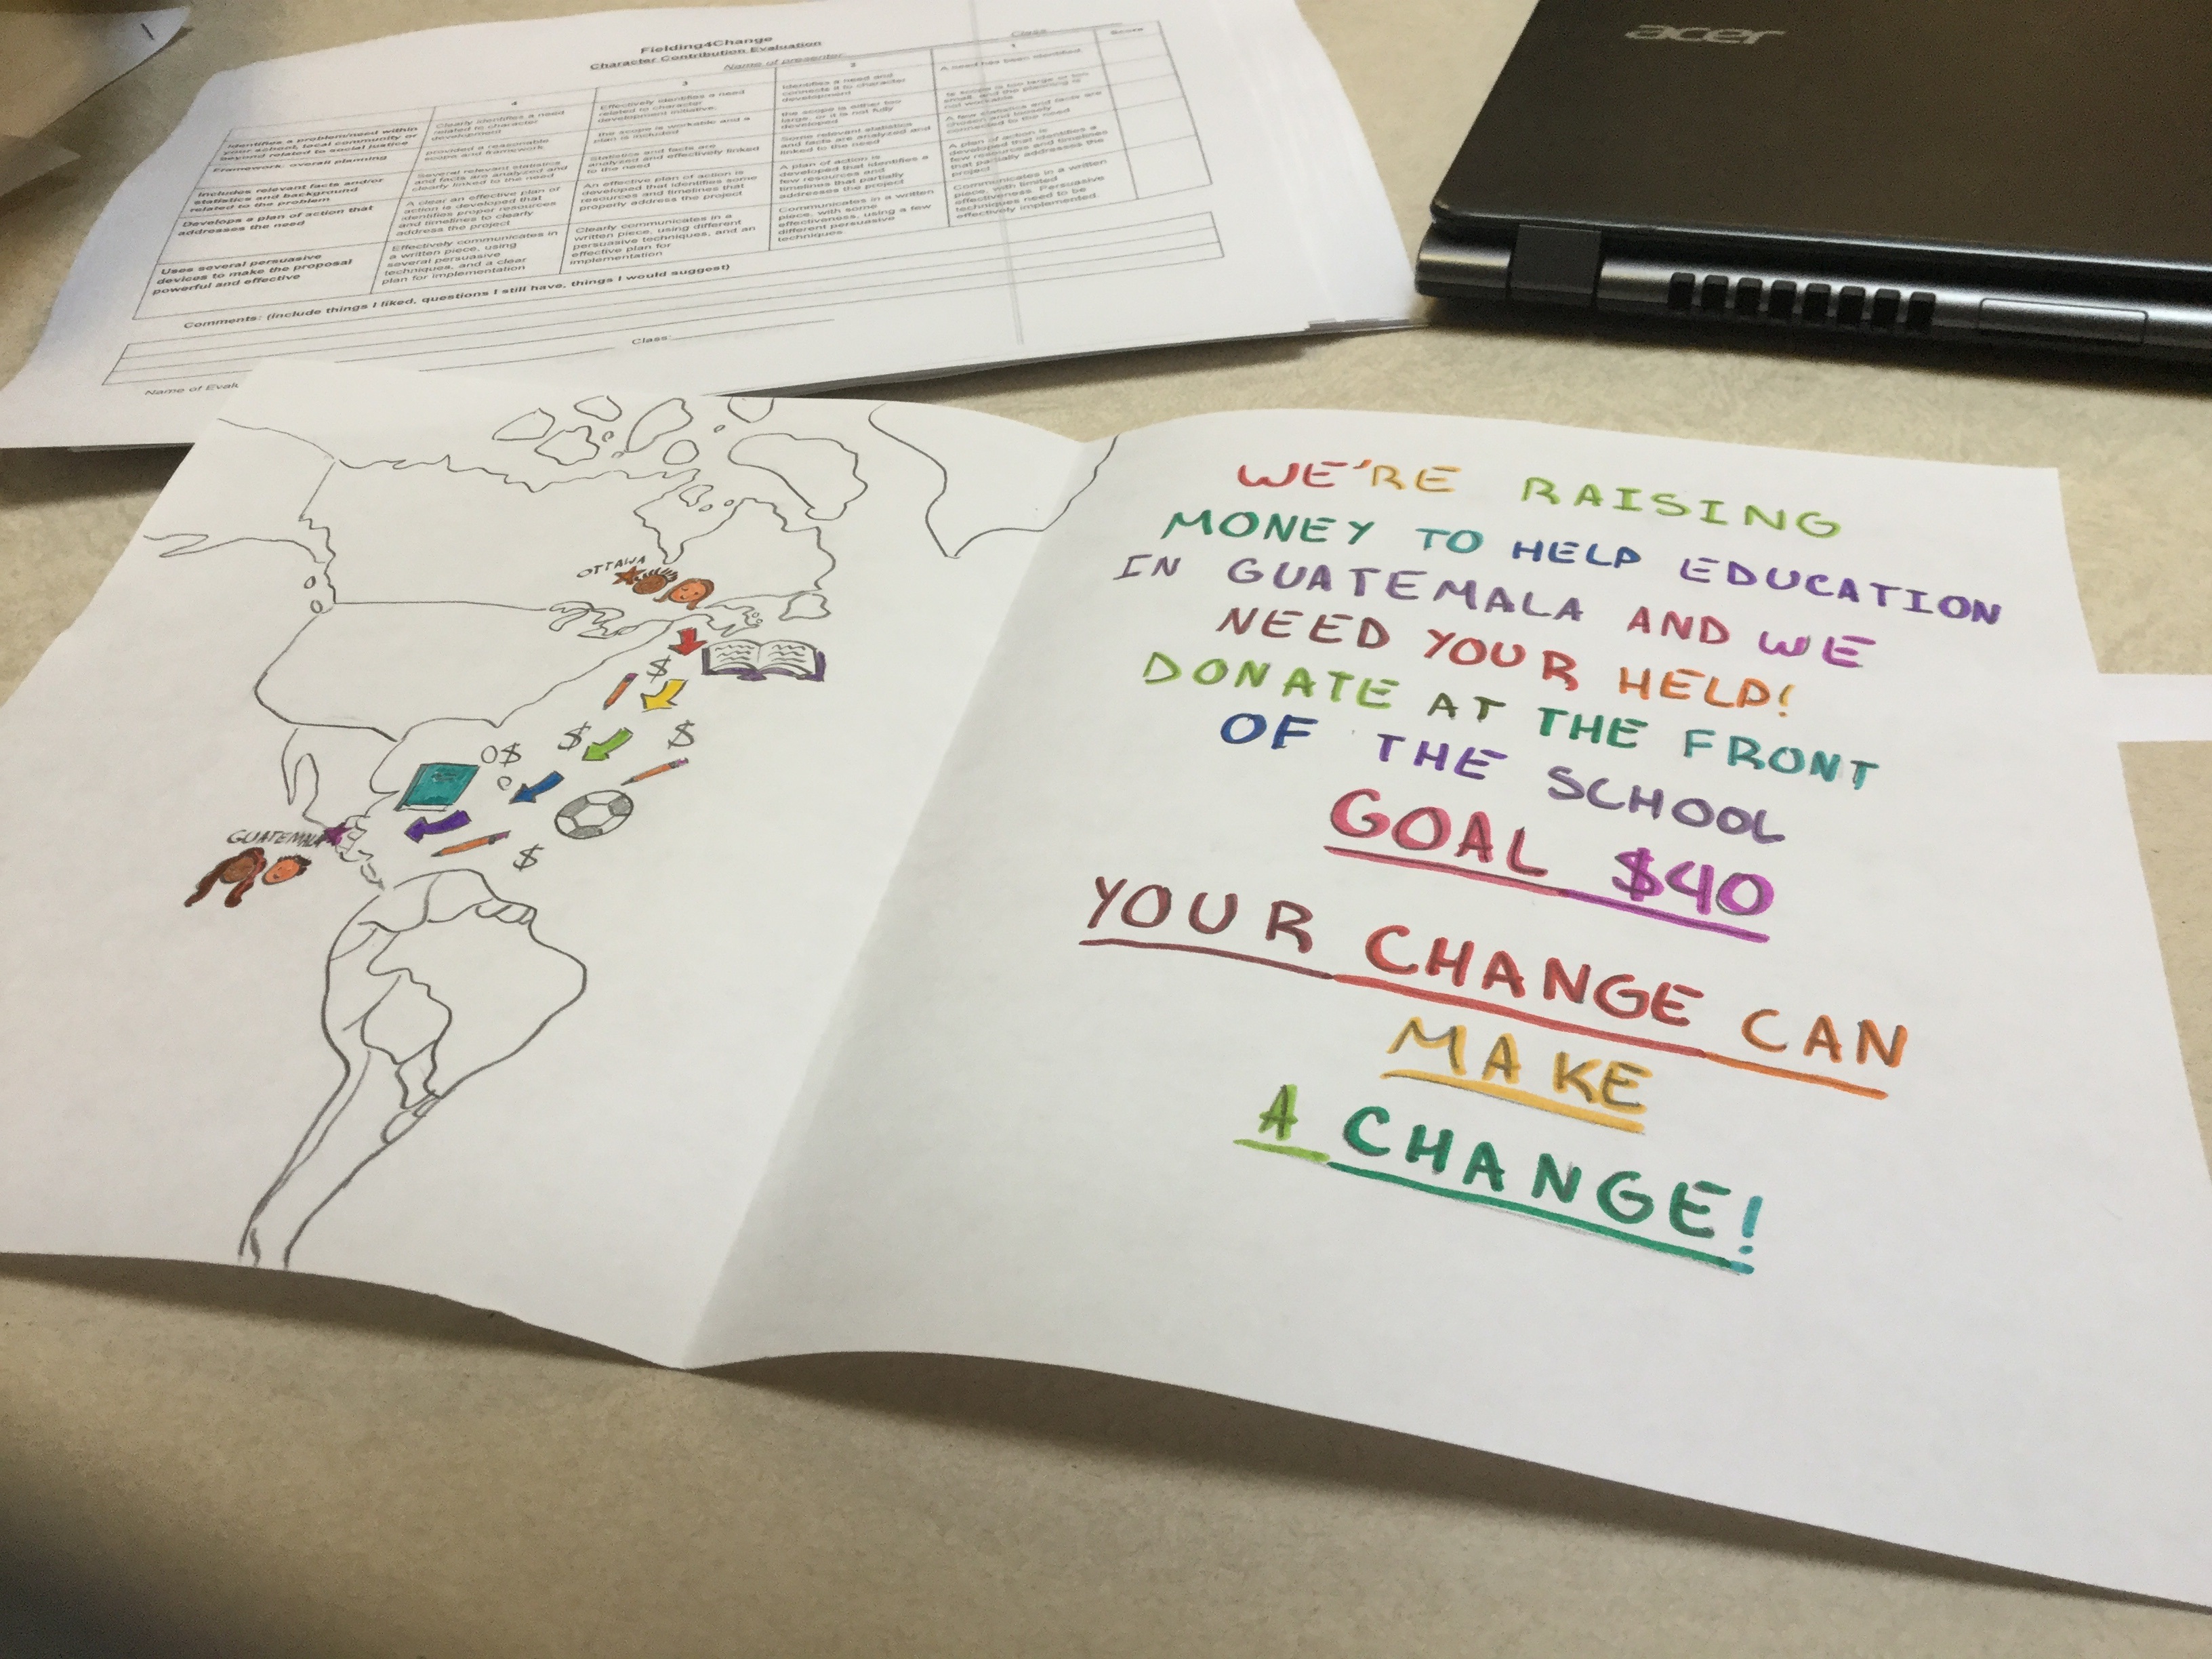 Fielding4Change
Character Contribution Evaluation
Name of presenter
Class
4
3
2
1
Score
Identifies a problem/need within
your school, local community or
beyond related to social justice
Clearly identifies a need
related to character
development
Effectively identifies a need
related to character
development initiative.
Identifies a need and
connects it to character
development
A need has been identified.
Framework: overall planning
provided a reasonable
scope and framework
the scope is workable and a
plan is included
the scope is either too
large, or it is not fully
developed
scope is too large or too
small, and the planning is
not workable
Includes relevant facts and/or
statistics and background
related to the problem
Several relevant statistics
and facts are analyzed and
clearly linked to the need
Statistics and facts are
analyzed and effectively linked
to the need
Some relevant statistics
and facts are analyzed and
linked to the need
A few statistics and facts are
chosen and loosely
connected to the need
Develops a plan of action that
addresses the need
A clear an effective plan of
action is developed that
identifies proper resources
and timelines to clearly
address the project
An effective plan of action is
developed that identifies some
resources and timelines that
properly address the project
A plan of action is
developed that identifies a
few resources and
timelines that partially
addresses the project
A plan of action is
developed that identifies a
few resources and timelines
that partially addresses the
project
Uses several persuasive
devices to make the proposal
powerful and effective
Effectively communicates in
a written piece, using
several persuasive
techniques, and a clear
plan for implementation
Clearly communicates in a
written piece, using different
persuasive techniques, and an
effective plan for
implementation
Communicates in a written
piece, with some
effectiveness, using a few
different persuasive
techniques
Communicates in a written
piece, with limited
effectiveness. Persuasive
techniques need to be
effectively implemented.
Comments: (include things I liked, questions I still have, things I would suggest)
Class:
Name of
acer
OTTAWA
$
$
$
$
$
GUATEMALA
WE'RE RAISING
MONEY TO HELP EDUCATION
IN GUATEMALA AND WE
NEED YOUR HELP!
DONATE AT THE FRONT
OF THE SCHOOL
GOAL $40
YOUR CHANGE CAN
MAKE
A CHANGE!